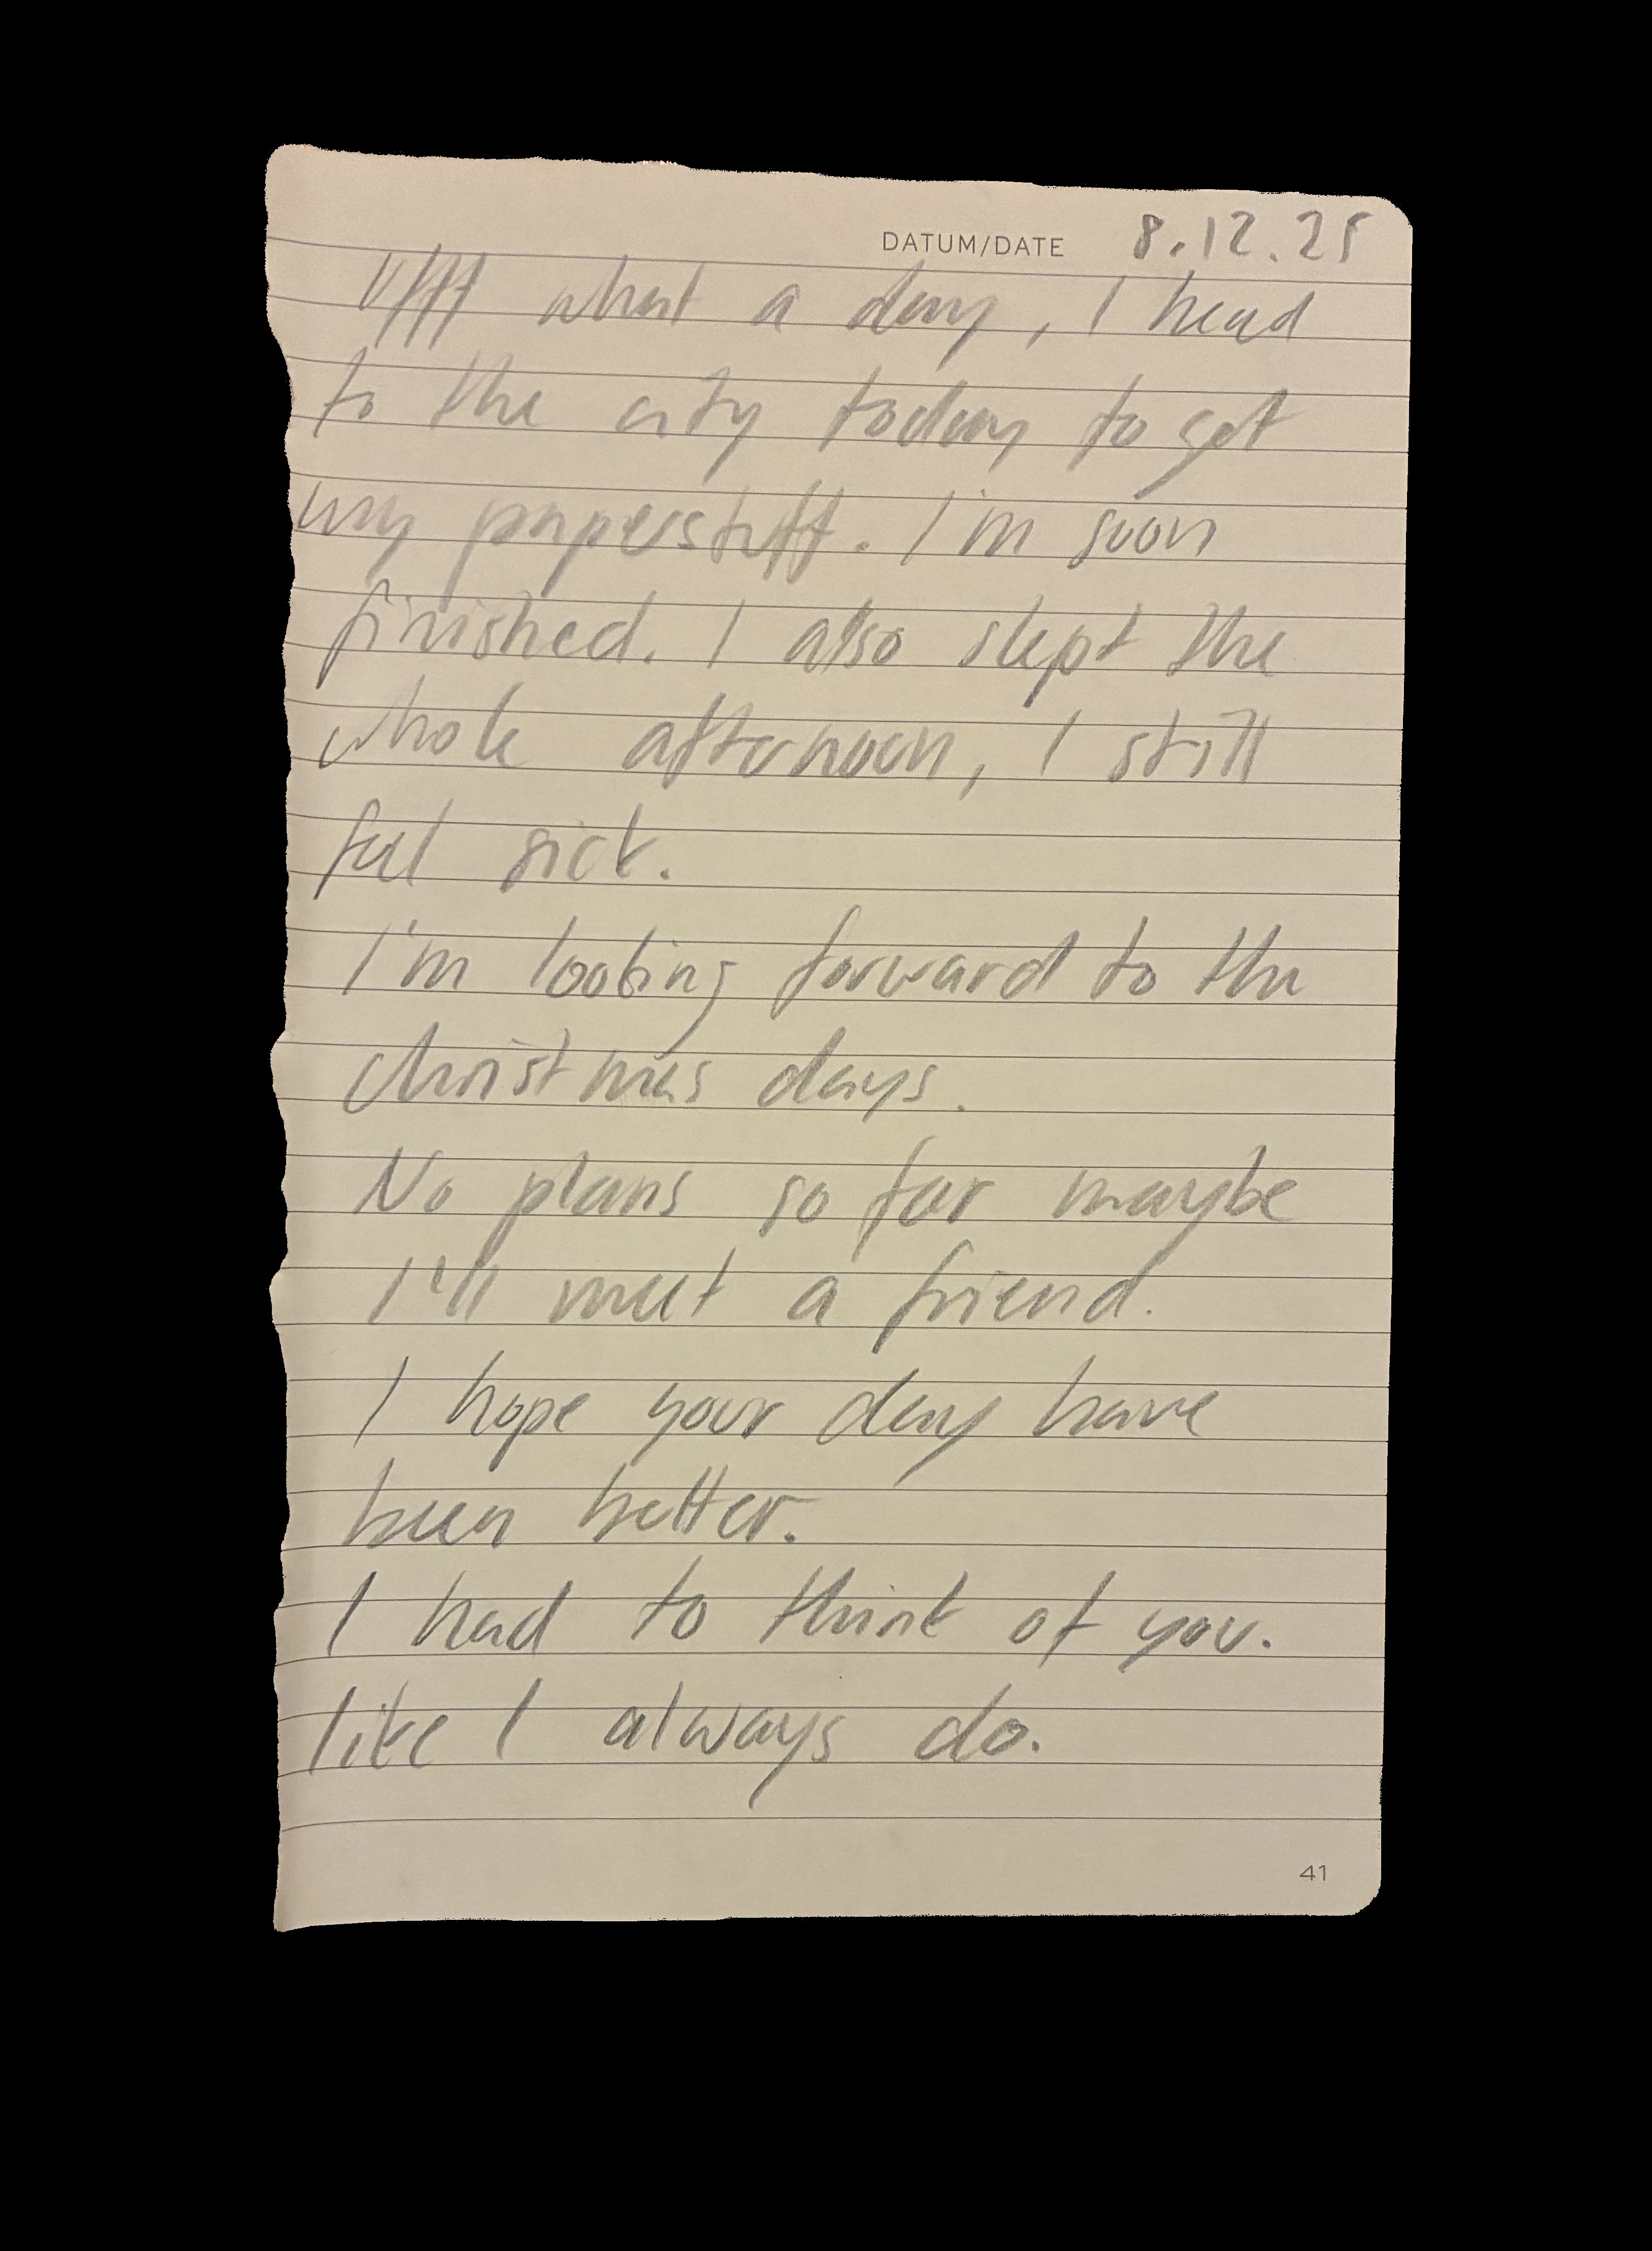 DATUM/DATE 8.12.25
Uffff what a day, I head
to the city today to get
my paperstuff. I'm soon
finished. I also slept the
whole afternoon, I still
feel sick.
I'm looking forward to the
christmas days.
No plans so far maybe
I'll meet a friend.
I hope your day have
been better.
I had to think of you.
like I always do.
41